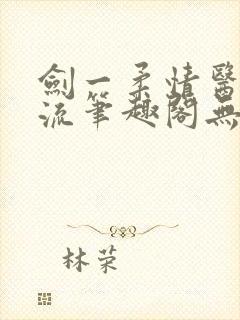 劍一柔情醫
流筆趣閣無
林荣